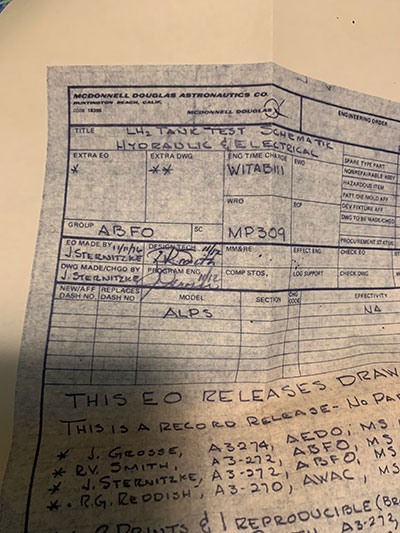 MCDONNELL DOUGLAS ASTRONAUTICS CO.
HUNTINGTON BEACH, CALIF.
CODE 18355
MCDONNELL DOUGLAS
ENGINEERING ORDER
TITLE LH2 TANK TEST SCHEMATIC
HYDRAULIC & ELECTRICAL
EXTRA EO EXTRA DWG ENG TIME CHARGE EWO SPARE TYPE PART
* ** WITAB111 NONREPAIRABLE ASSY
HAZARDOUS ITEM
WRO ECP PATT/DIE MOLD AFF
DEV FIXTURE AFF
DWG TO BE MADE/CHGD
GROUP ABFO SC MP309 PROCUREMENT STATUS
EO MADE BY 11/11/76 DESIGN TECH 11/12 MM&RE EFFECT ENG CHECK EO
J. STERNITZKE
DWG MADE/CHGD BY PROGRAM ENG 11/12 COMP STDS. LOG SUPPORT CHECK DWG
J. STERNITZKE
NEW/AFF DASH NO. REPLACES DASH NO MODEL SECTION CHG CODE EFFECTIVITY
ALPS NA
THIS EO RELEASES DRAW
THIS IS A RECORD RELEASE - NO PAR
* J. GROSSE, A3274, AEDO, MS
* R.V. SMITH, A3-272, ABFO, MS
* J. STERNITZKE, A3-272, ABFO, MS
* R.G. REDDISH, A3-270, AWAC, MS
PRINTS & 1 REPRODUCIBLE (BR
A3-272,